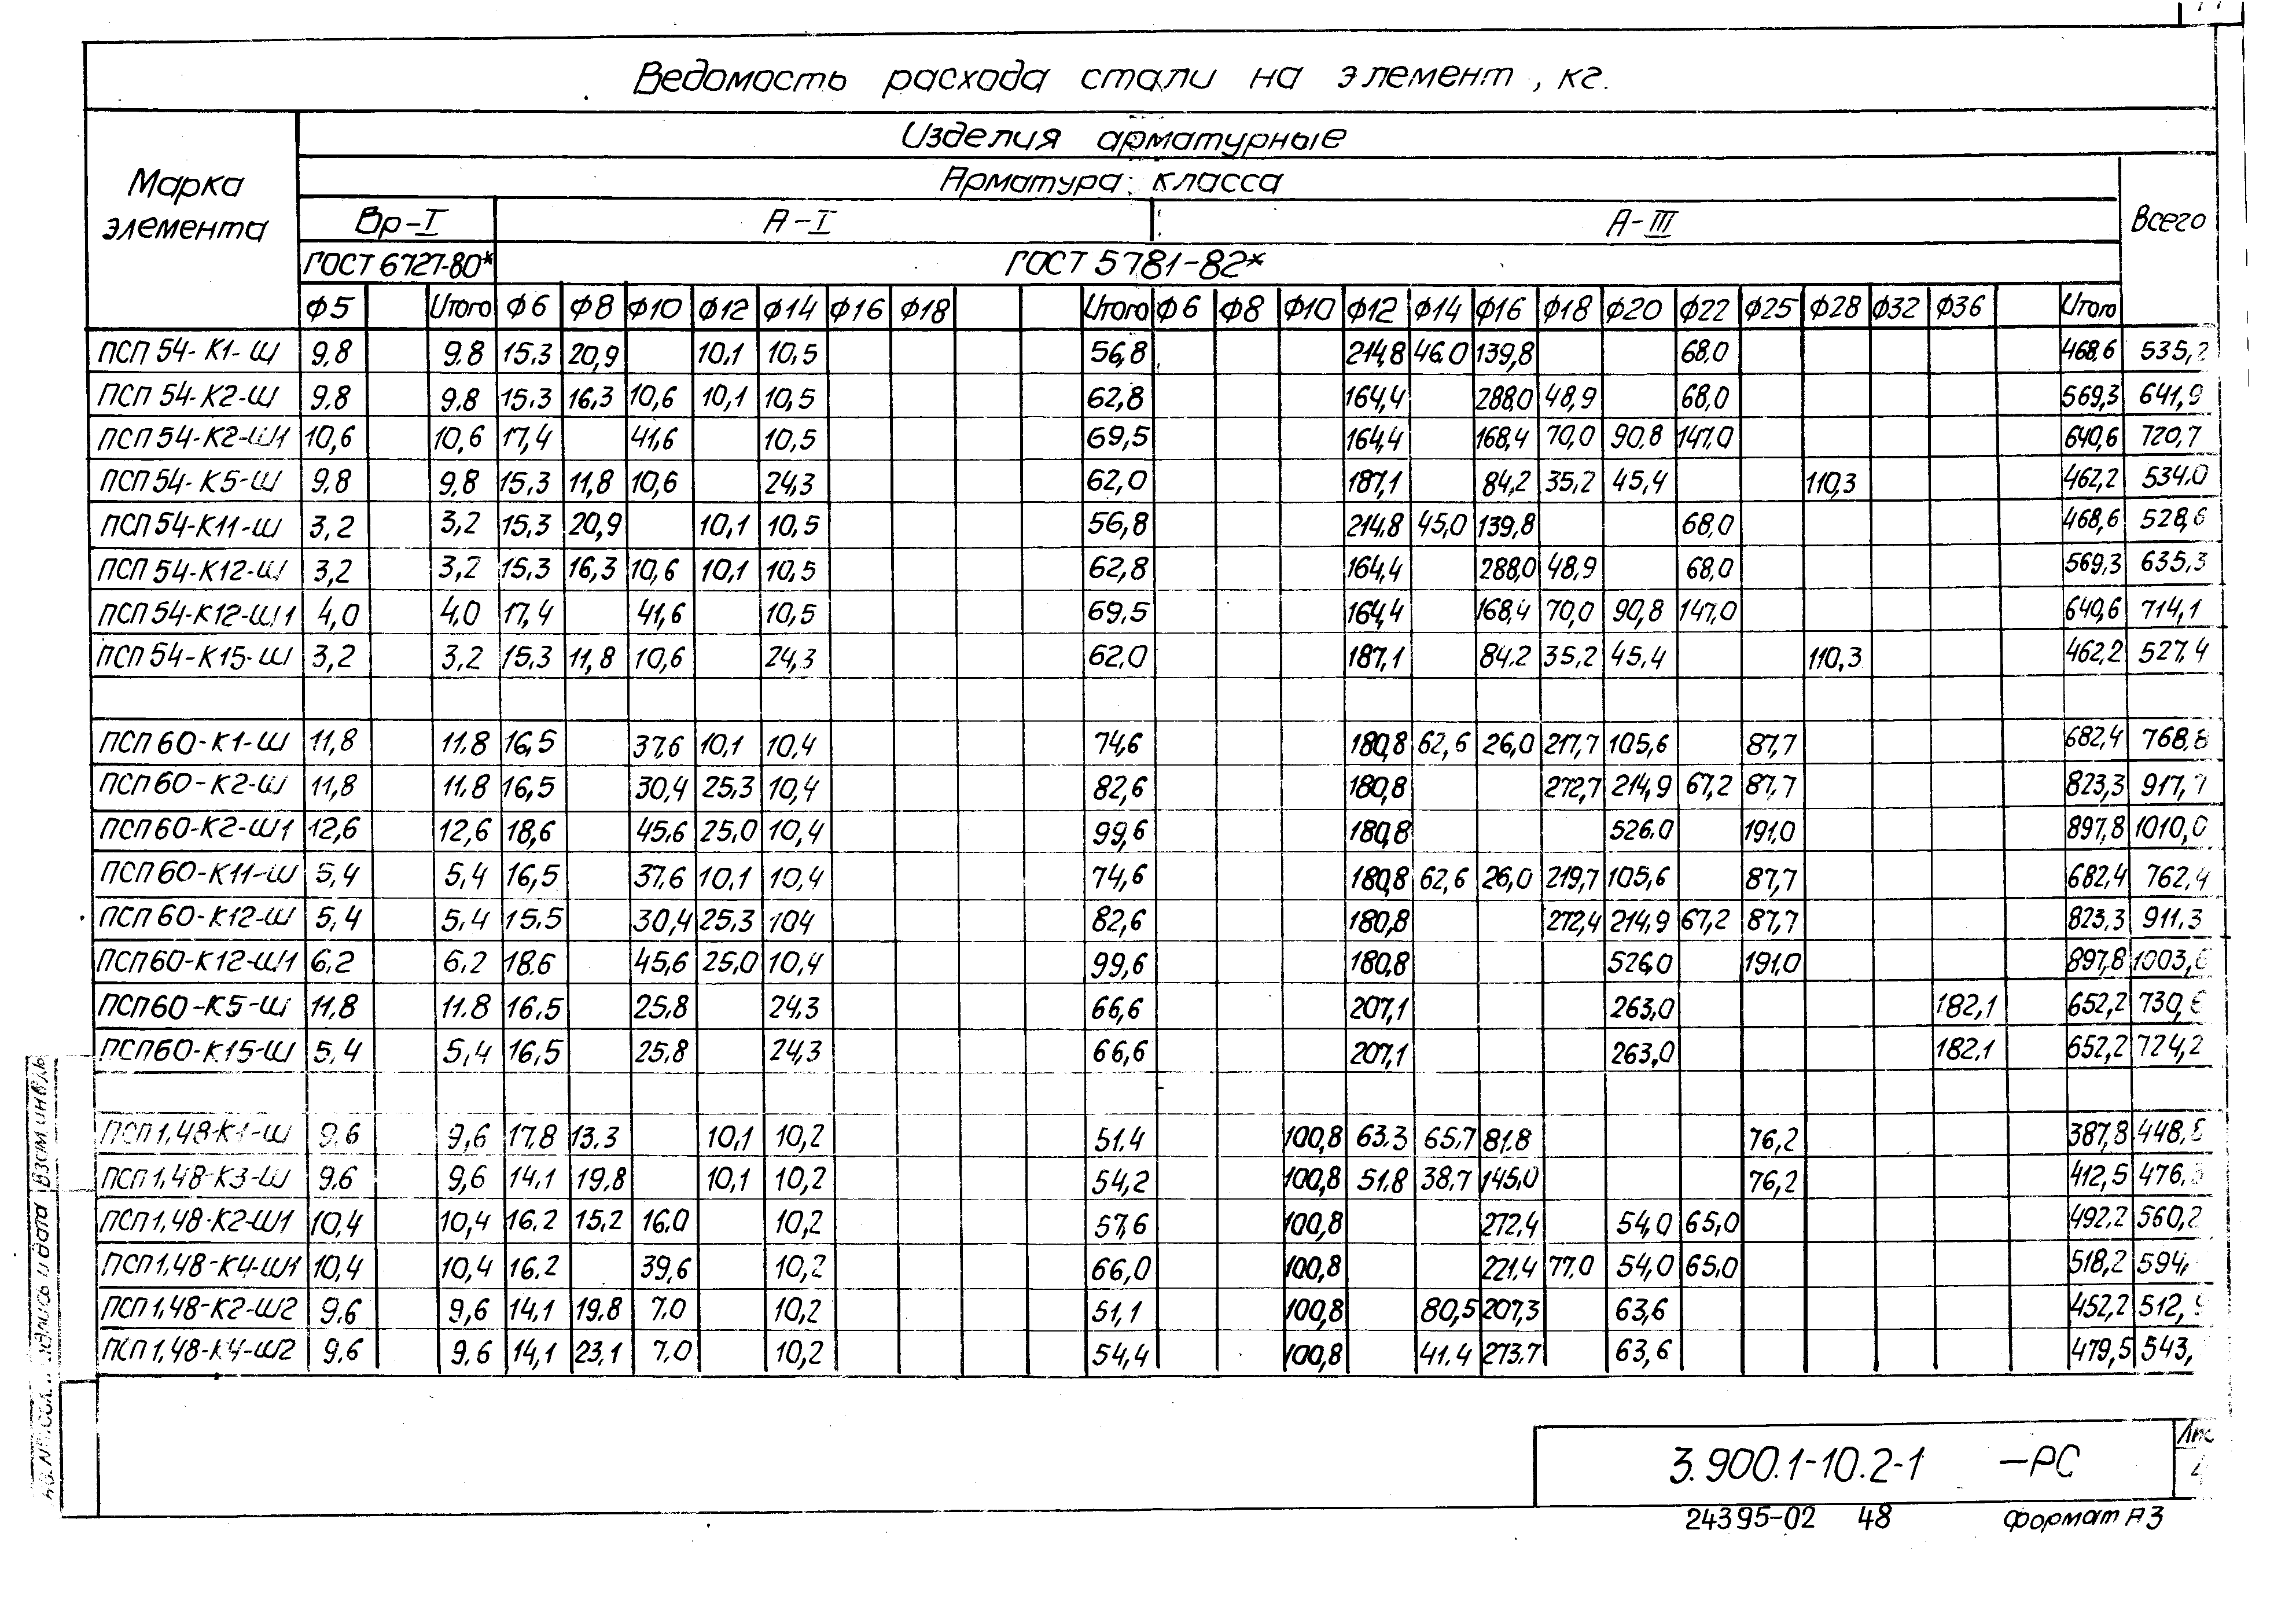 Ведомость расхода стали на элемент, кг.
Марка элемента
Изделия арматурные
Арматура класса
Всего
Вр-I А-I А-III
ГОСТ 6727-80* ГОСТ 5781-82*
Ф5 Итого Ф6 Ф8 Ф10 Ф12 Ф14 Ф16 Ф18 Итого Ф6 Ф8 Ф10 Ф12 Ф14 Ф16 Ф18 Ф20 Ф22 Ф25 Ф28 Ф32 Ф36 Итого
ПСП 54-К1-Ш 9,8 9.8 15.3 20,9 10,1 10,5 56,8 214,8 46.0 139,8 68.0 468,6 535,2
ПСП 54-К2-Ш 9.8 9.8 15.3 16,3 10,6 10,1 10,5 62,8 164,4 288,0 48,9 68,0 569,3 641,9
ПСП 54-К2-Ш1 10,6 10,6 17,4 41,6 10,5 69,5 164,4 168,4 70,0 90,8 147,0 640,6 720,7
ПСП 54-К5-Ш 9,8 9,8 15,3 11,8 10,6 24,3 62,0 187,1 84,2 35,2 45,4 110,3 462,2 534,0
ПСП 54-К11-Ш 3,2 3,2 15.3 20,9 10,1 10,5 56,8 214,8 45,0 139,8 68,0 468,6 528,6
ПСП 54-К12-Ш 3,2 3,2 15.3 16,3 10,6 10,1 10,5 62,8 164,4 288,0 48,9 68,0 569,3 635,3
ПСП 54-К12-Ш1 4,0 4,0 17,4 41,6 10,5 69,5 164,4 168,4 70,0 90,8 147,0 640,6 714,1
ПСП 54-К15-Ш 3,2 3,2 15.3 11,8 10,6 24,3 62,0 187,1 84.2 35,2 45,4 110,3 462,2 527,4
ПСП 60-К1-Ш 11,8 11.8 16,5 37,6 10,1 10,4 74,6 180,8 62,6 26,0 217,7 105,6 87,7 682,4 768,8
ПСП 60-К2-Ш 11,8 11.8 16,5 30,4 25,3 10,4 82,6 180,8 272,7 214,9 67,2 87,7 823,3 917,7
ПСП 60-К2-Ш1 12,6 12,6 18,6 45,6 25,0 10,4 99,6 180,8 526,0 191,0 897,8 1010,0
ПСП 60-К11-Ш 5,4 5,4 16,5 37,6 10,1 10,4 74,6 180,8 62,6 26,0 219,7 105,6 87,7 682,4 762,4
ПСП 60-К12-Ш 5,4 5,4 15.5 30,4 25,3 104 82,6 180,8 272,4 214,9 67,2 87,7 823,3 911,3
ПСП 60-К12-Ш1 6,2 6,2 18.6 45,6 25,0 10,4 99,6 180,8 526,0 191,0 897,8 1003,6
ПСП 60-К5-Ш 11,8 11.8 16,5 25,8 24,3 66,6 207,1 263,0 182,1 652,2 730,6
ПСП 60-К15-Ш 5,4 5,4 16,5 25,8 24,3 66,6 207,1 263,0 182,1 652,2 724,2
ПСП 1,48-К1-Ш 9.6 9,6 17,8 13.3 10,1 10,2 51.4 100,8 63,3 65,7 81.8 76,2 387,8
ПСП 1,48-К3-Ш 9.6 9,6 14,1 19,8 10,1 10,2 54,2 100,8 51,8 38,7 145,0 76,2 412,5
ПСП 1,48-К2-Ш1 10,4 10,4 16.2 15,2 16.0 10,2 57,6 100,8 272,4 54,0 65,0 492,2 560,2
ПСП 1,48-К4-Ш1 10,4 10,4 16.2 39,6 10,2 66,0 100,8 221,4 77,0 54,0 65,0 518,2 594,
ПСП 1,48-К2-Ш2 9,6 9,6 14,1 19,8 7.0 10,2 51,1 100,8 80,5 207,3 63,6 452,2
ПСП 1,48-К4-Ш2 9.6 9.6 14,1 23,1 7.0 10,2 54,4 100,8 41.4 273,7 63,6 479,5 543,
подпись и дата
взам.инв.№
3.900.1-10.2-1 -РС
24395-02 48 Формат А3